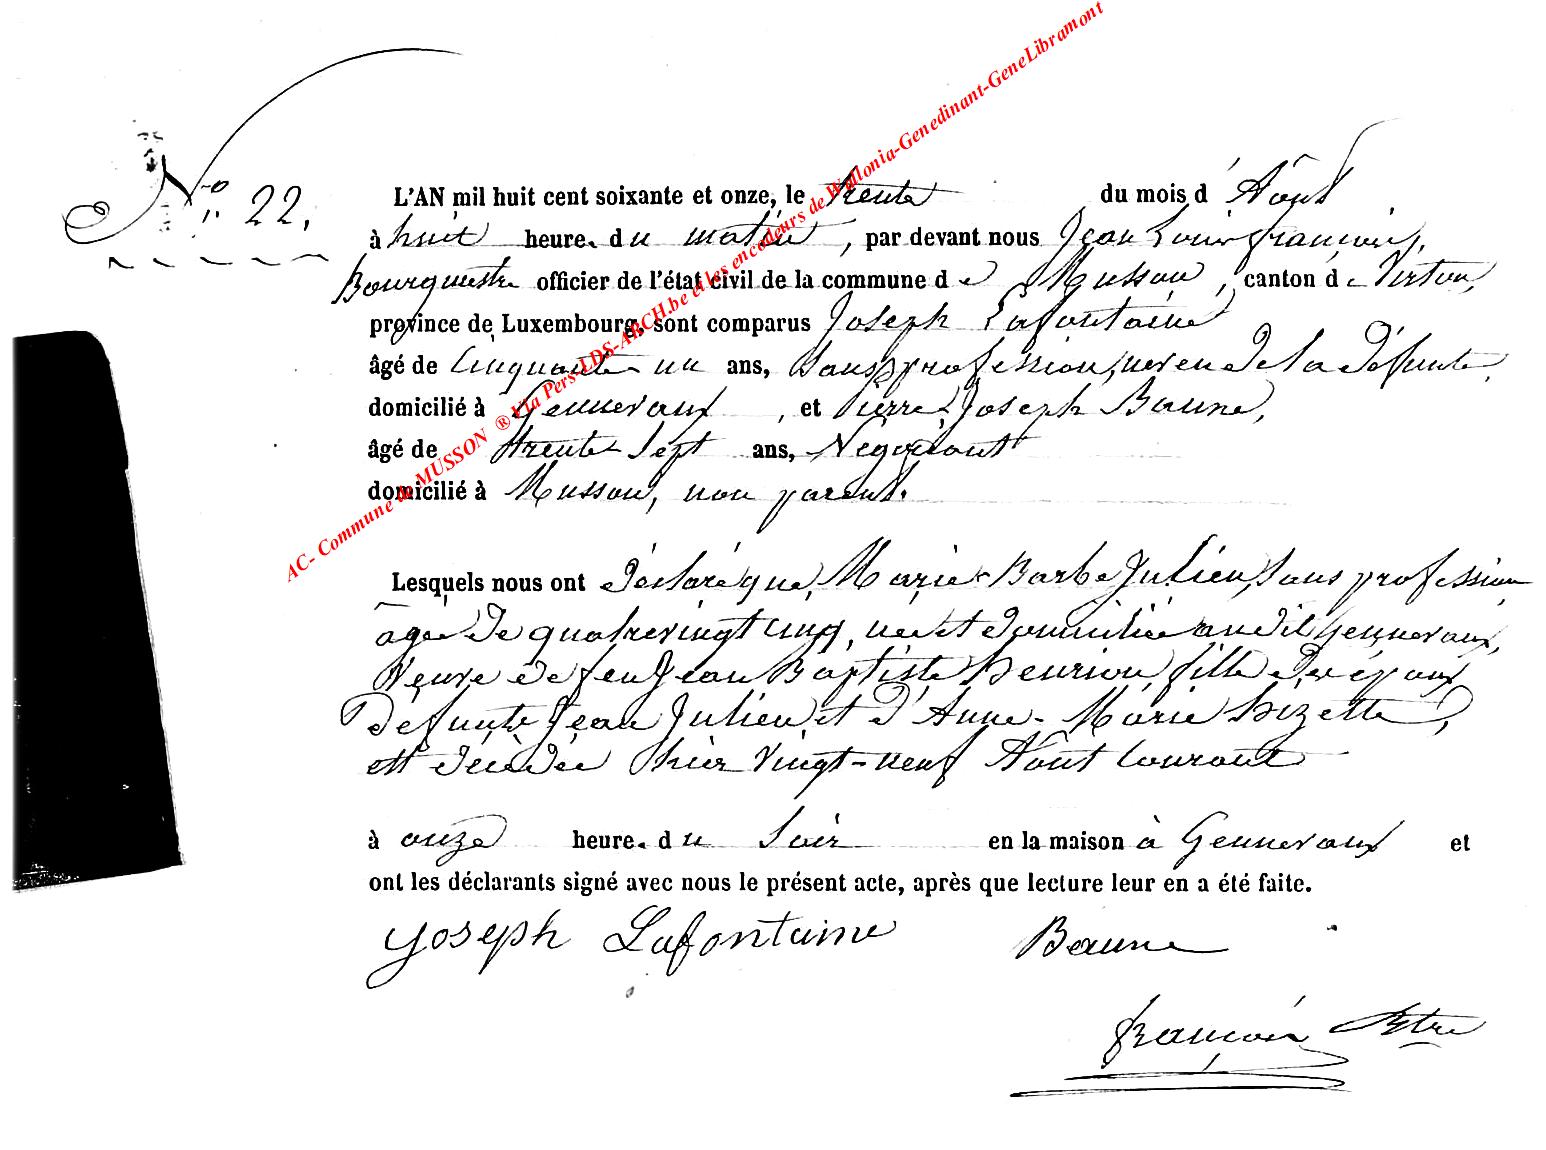 N.º 22.
L'AN mil huit cent soixante et onze, le trente du mois d'Août
à huit heure. du matin, par devant nous Jean Louis François,
Bourgmestre officier de l'état civil de la commune de Musson, canton de Virton,
province de Luxembourg, sont comparus Joseph Lafontaine
âgé de Cinquante un ans, sans profession, neveu de la défunte,
domicilié à Gennevaux, et Pierre-Joseph Baune,
âgé de trente-sept ans, Négociant
domicilié à Musson, non parent.
Lesquels nous ont déclaré que, Marie-Barbe Julien, sans profession
âgée de quatrevingt cinq, née et domiciliée audit Gennevaux,
Veuve de feu Jean Baptiste Henrion, fille des époux
défunts Jean Julien et d'Anne-Marie Hizette,
est décédée hier vingt-neuf Août courant
à onze heure. du soir en la maison à Gennevaux et
ont les déclarants signé avec nous le présent acte, après que lecture leur en a été faite.
Joseph Lafontaine Baune
François Bstre
AC- Commune de MUSSON ® Via Pers-LDS-ARCH.be et les encodeurs de Wallonia-Genedinant-GeneLibramont